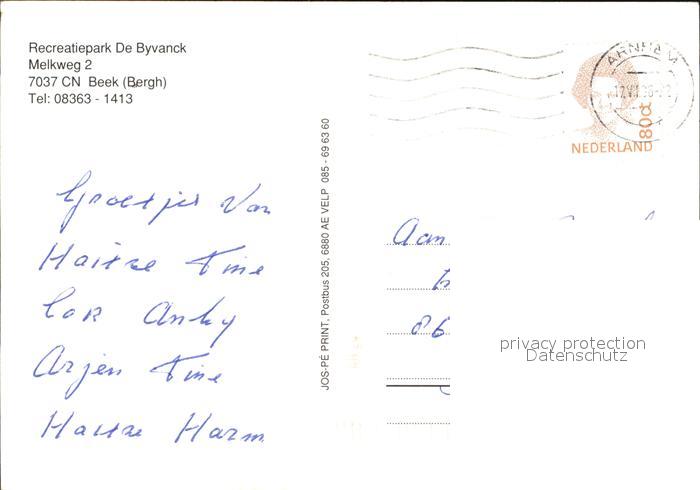 Recreatiepark De Byvanck
Melkweg 2
7037 CN Beek (Bergh)
Tel: 08363 - 1413
ARNHEM
80ct
NEDERLAND
JOS-PÉ PRINT, Postbus 205, 6880 AE VELP 085 - 69 63 60
Groetjes Van
Haitze Tine
Cor Anky
Arjen Tine
Haitze Harm
Aan
86
privacy protection
Datenschutz